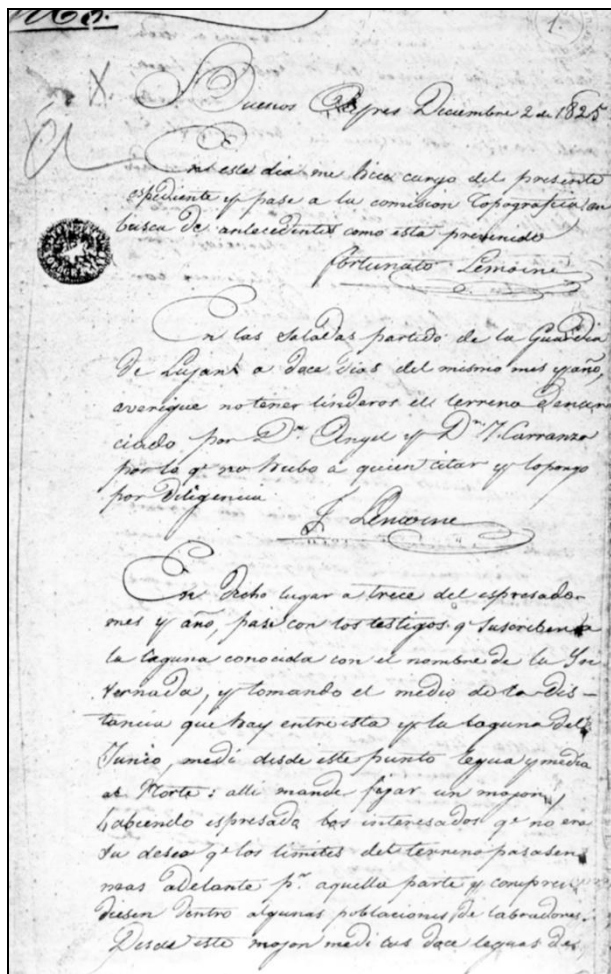 1.
Buenos Ayres Diciembre 2 de 1825
En este dia me hice cargo del presente
espediente y pase a la comision Topografica en
busca de antecedentes como esta prevenido
Fortunato Lemoine
En las Saladas partido de la Guardia
de Lujan a doce dias del mismo mes y año,
averigue no tener linderos el terreno denun
ciado por Dn. Angel y Dn. J. Carranza
por lo qe. no hubo a quien citar y lo pongo
por diligencia
F. Lemoine
En dicho lugar a trece del espresado
mes y año, pase con los testigos q suscriben a
la laguna conocida con el nombre de la In
vernada, y tomando el medio de la dis-
tancia que hay entre esta y la laguna del
Junco, medi desde este punto legua y media
al Norte: alli mande fijar un mojon,
habiendo espresado los interesados qe no era
su deseo qe los limites del terreno pasasen
mas adelante pr. aquella parte y compren
diesen dentro algunas poblaciones de labradores.
Desde este mojon medi las doce leguas des